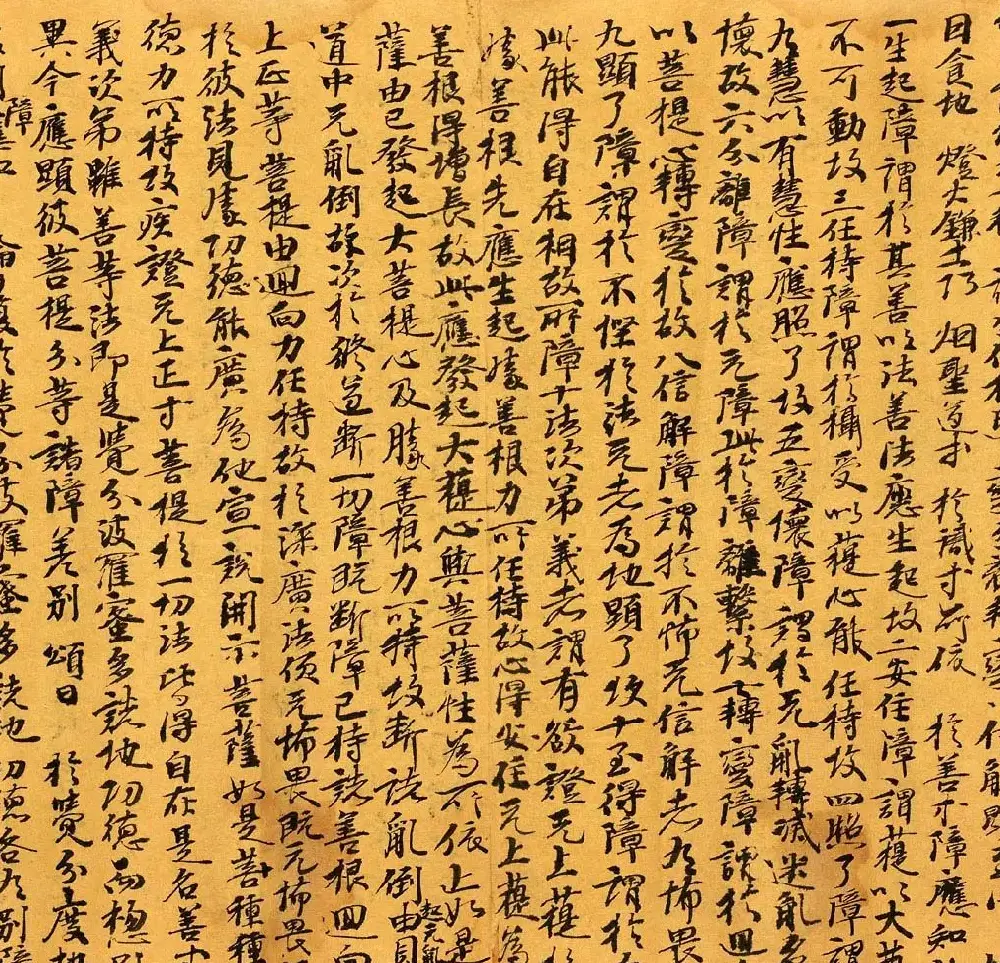 日食地 燈火鎌工巧 烟聖道才 於識才所依 於善才障應知
一生起障謂於其善以法善法應生起故二安住障謂菩提以大菩
不可動故三任持障謂於攝受以菩提心能任持故四照了障謂
九慧以有慧性應照了故五變壞障謂於无亂轉滅迷亂名
懷故六分離障謂於无障此於障離繫故七轉變障謂於迴
以菩提心轉變於故八信解障謂於不怖无信解者九怖畏
九顯了障謂於不慳於法无者為他顯了故十至得障謂於
此能得自在相故所障十法次第義者謂有欲證无上菩提於
勝善根先應生起勝善根力所任持故心得安住无上菩提為
善根得增長故此應發起大菩提心與菩薩性為所依止如是
薩由已發起大菩提心及勝善根力所持故斷諸亂倒由
道中无亂倒故次於修道斷一切障既斷障已持諸善根迴向
上正等菩提由迴向力任持故於深廣法便无怖畏既无怖畏
於彼法見勝功德能廣為他宣說開示菩薩如是菩種種
德力所持故疾證无上正等菩提於一切法皆得自在是名善
義次第雖善等法即是覺分波羅蜜多諸地功德而惣別
異今應顯彼菩提分等諸障差別頌曰 於覺分度地